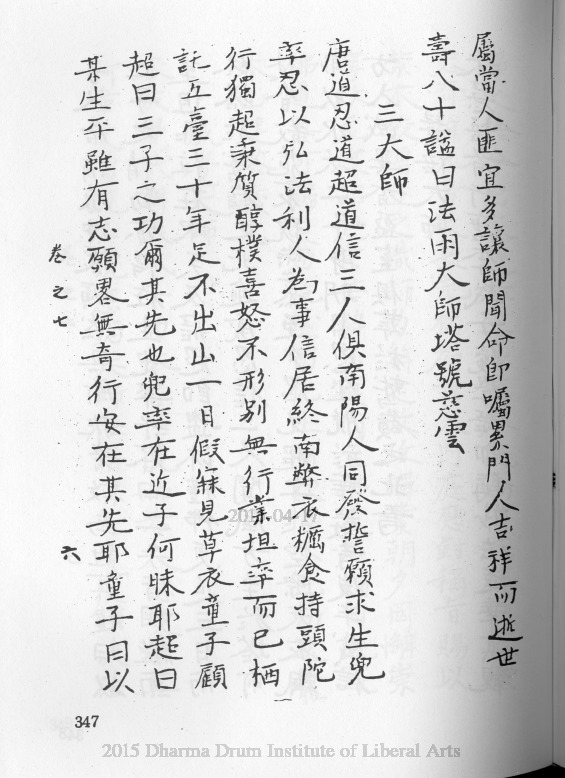 屬當人匪宜多讓師聞命即囑累門人吉祥而逝世
壽八十謚曰法雨大師塔號慈雲
三大師
唐道忍道超道信三人俱南陽人同發誓願求生兜
率忍以弘法利人為事信居終南弊衣糲食持頭陀
行獨超秉質醇樸喜怒不形別無行業坦率而已栖
託五臺三十年足不出山一日假寐見草衣童子顧
超曰三子之功爾其先也兜率在近子何昧耶超曰
某生平雖有志願畧無奇行安在其先耶童子曰以
卷之七
六
347
2015 Dharma Drum Institute of Liberal Arts